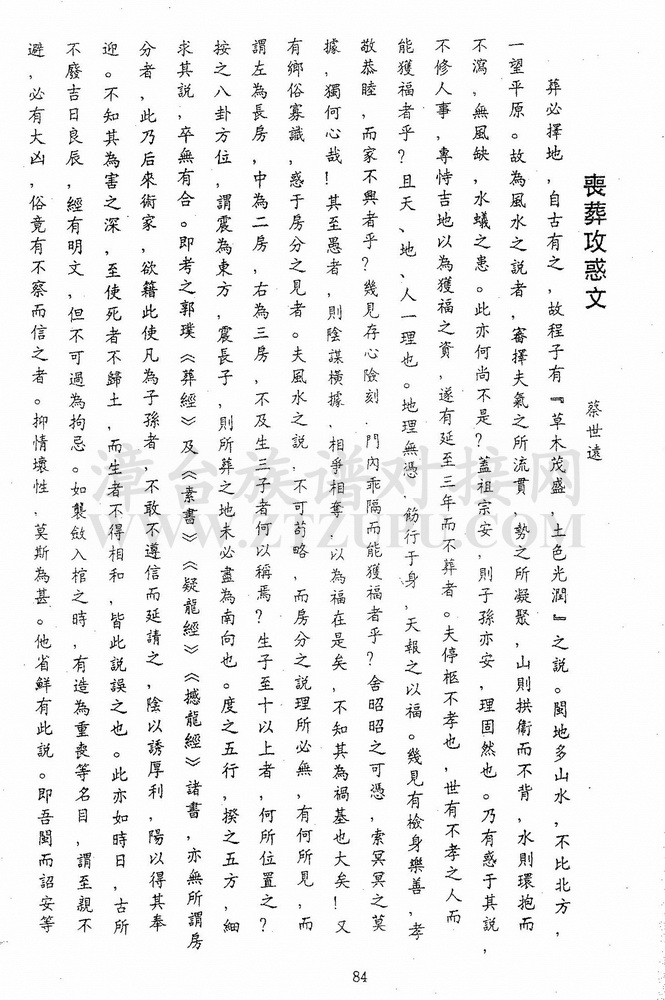 喪葬攻惑文
蔡世遠
葬必擇地，自古有之，故程子有『草木茂盛，土色光潤』之説。閩地多山水，不比北方，
一望平原。故為風水之説者，審擇夫氣之所流貫，勢之所凝聚，山則拱衛而不背，水則環抱而
不瀉，無風缺，水蟻之患。此亦何尚不是？蓋祖宗安，則子孫亦安，理固然也。乃有惑于其説，
不修人事，專恃吉地以為獲福之資，遂有延至三年而不葬者。夫停柩不孝也，世有不孝之人而
能獲福者乎？且天、地、人一理也。地理無憑，飭行于身，天報之以福。幾見有檢身樂善，孝
敬恭睦，而家不興者乎？幾見存心險刻，門內乖隔而能獲福者乎？舍昭昭之可憑，索冥冥之莫
據，獨何心哉！其至愚者，則陰謀橫據，相爭相奪，以為福在是矣，不知其為禍基也大矣！又
有鄉俗寡識，惑于房分之見者。夫風水之説，不可苟略，而房分之説理所必無，有何所見，而
謂左為長房，中為二房，右為三房，不及生三子者何以稱焉？生子至十以上者，何所位置之？
按之八卦方位，謂震為東方，震長子，則所葬之地未必盡為南向也。度之五行，揆之五方，細
求其説，卒無有合。即考之郭璞《葬經》及《素書》《疑龍經》《撼龍經》諸書，亦無所謂房
分者，此乃后來術家，欲藉此使凡為子孫者，不敢不遵信而延請之，陰以誘厚利，陽以得其奉
迎。不知其為害之深，至使死者不歸土，而生者不得相和，皆此説誤之也。此亦如時日，古所
不廢吉日良辰，經有明文，但不可過為拘忌。如襲斂入棺之時，有造為重喪等名目，謂至親不
避，必有大凶，俗竟有不察而信之者。抑情壞性，莫斯為甚。他省鮮有此説。即吾閩而詔安等
84
漳台族谱对接网
WWW.ZTZUPU.COM